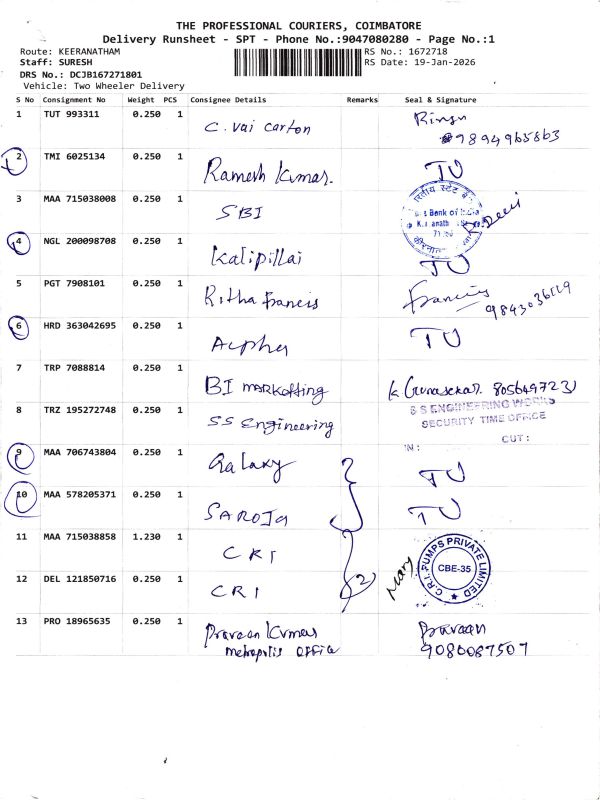 THE PROFESSIONAL COURIERS, COIMBATORE
Delivery Runsheet - SPT - Phone No.:9047080280 - Page No.:1
Route: KEERANATHAM RS No.: 1672718
Staff: SURESH RS Date: 19-Jan-2026
DRS No.: DCJB167271801
Vehicle: Two Wheeler Delivery
S No Consignment No Weight PCS Consignee Details Remarks Seal & Signature
1 TUT 993311 0.250 1 C. Vai Carton
9894965863
2 TMI 6025134 0.250 1 Ramesh Kumar. TU
3 MAA 715038008 0.250 1 SBI
Bank of
4 NGL 200098708 0.250 1 Kalipillai TU
5 PGT 7908101 0.250 1 Ritha Francis Francis
6 HRD 363042695 0.250 1 Alpha TU
7 TRP 7088814 0.250 1 BI marketting
8 TRZ 195272748 0.250 1 SS Engineering
S S ENGINEERING WORKS
SECURITY TIME OFFICE
IN: OUT:
9 MAA 706743804 0.250 1 Galaxy TU
10 MAA 578205371 0.250 1 SAROJA TU
11 MAA 715038858 1.230 1 CRI
C.R.I. PUMPS PRIVATE LIMITED
CBE-35
Mary
12 DEL 121850716 0.250 1 CRI 2
13 PRO 18965635 0.250 1 Praveen Kumar Pravaan
metropolis office 9080087507